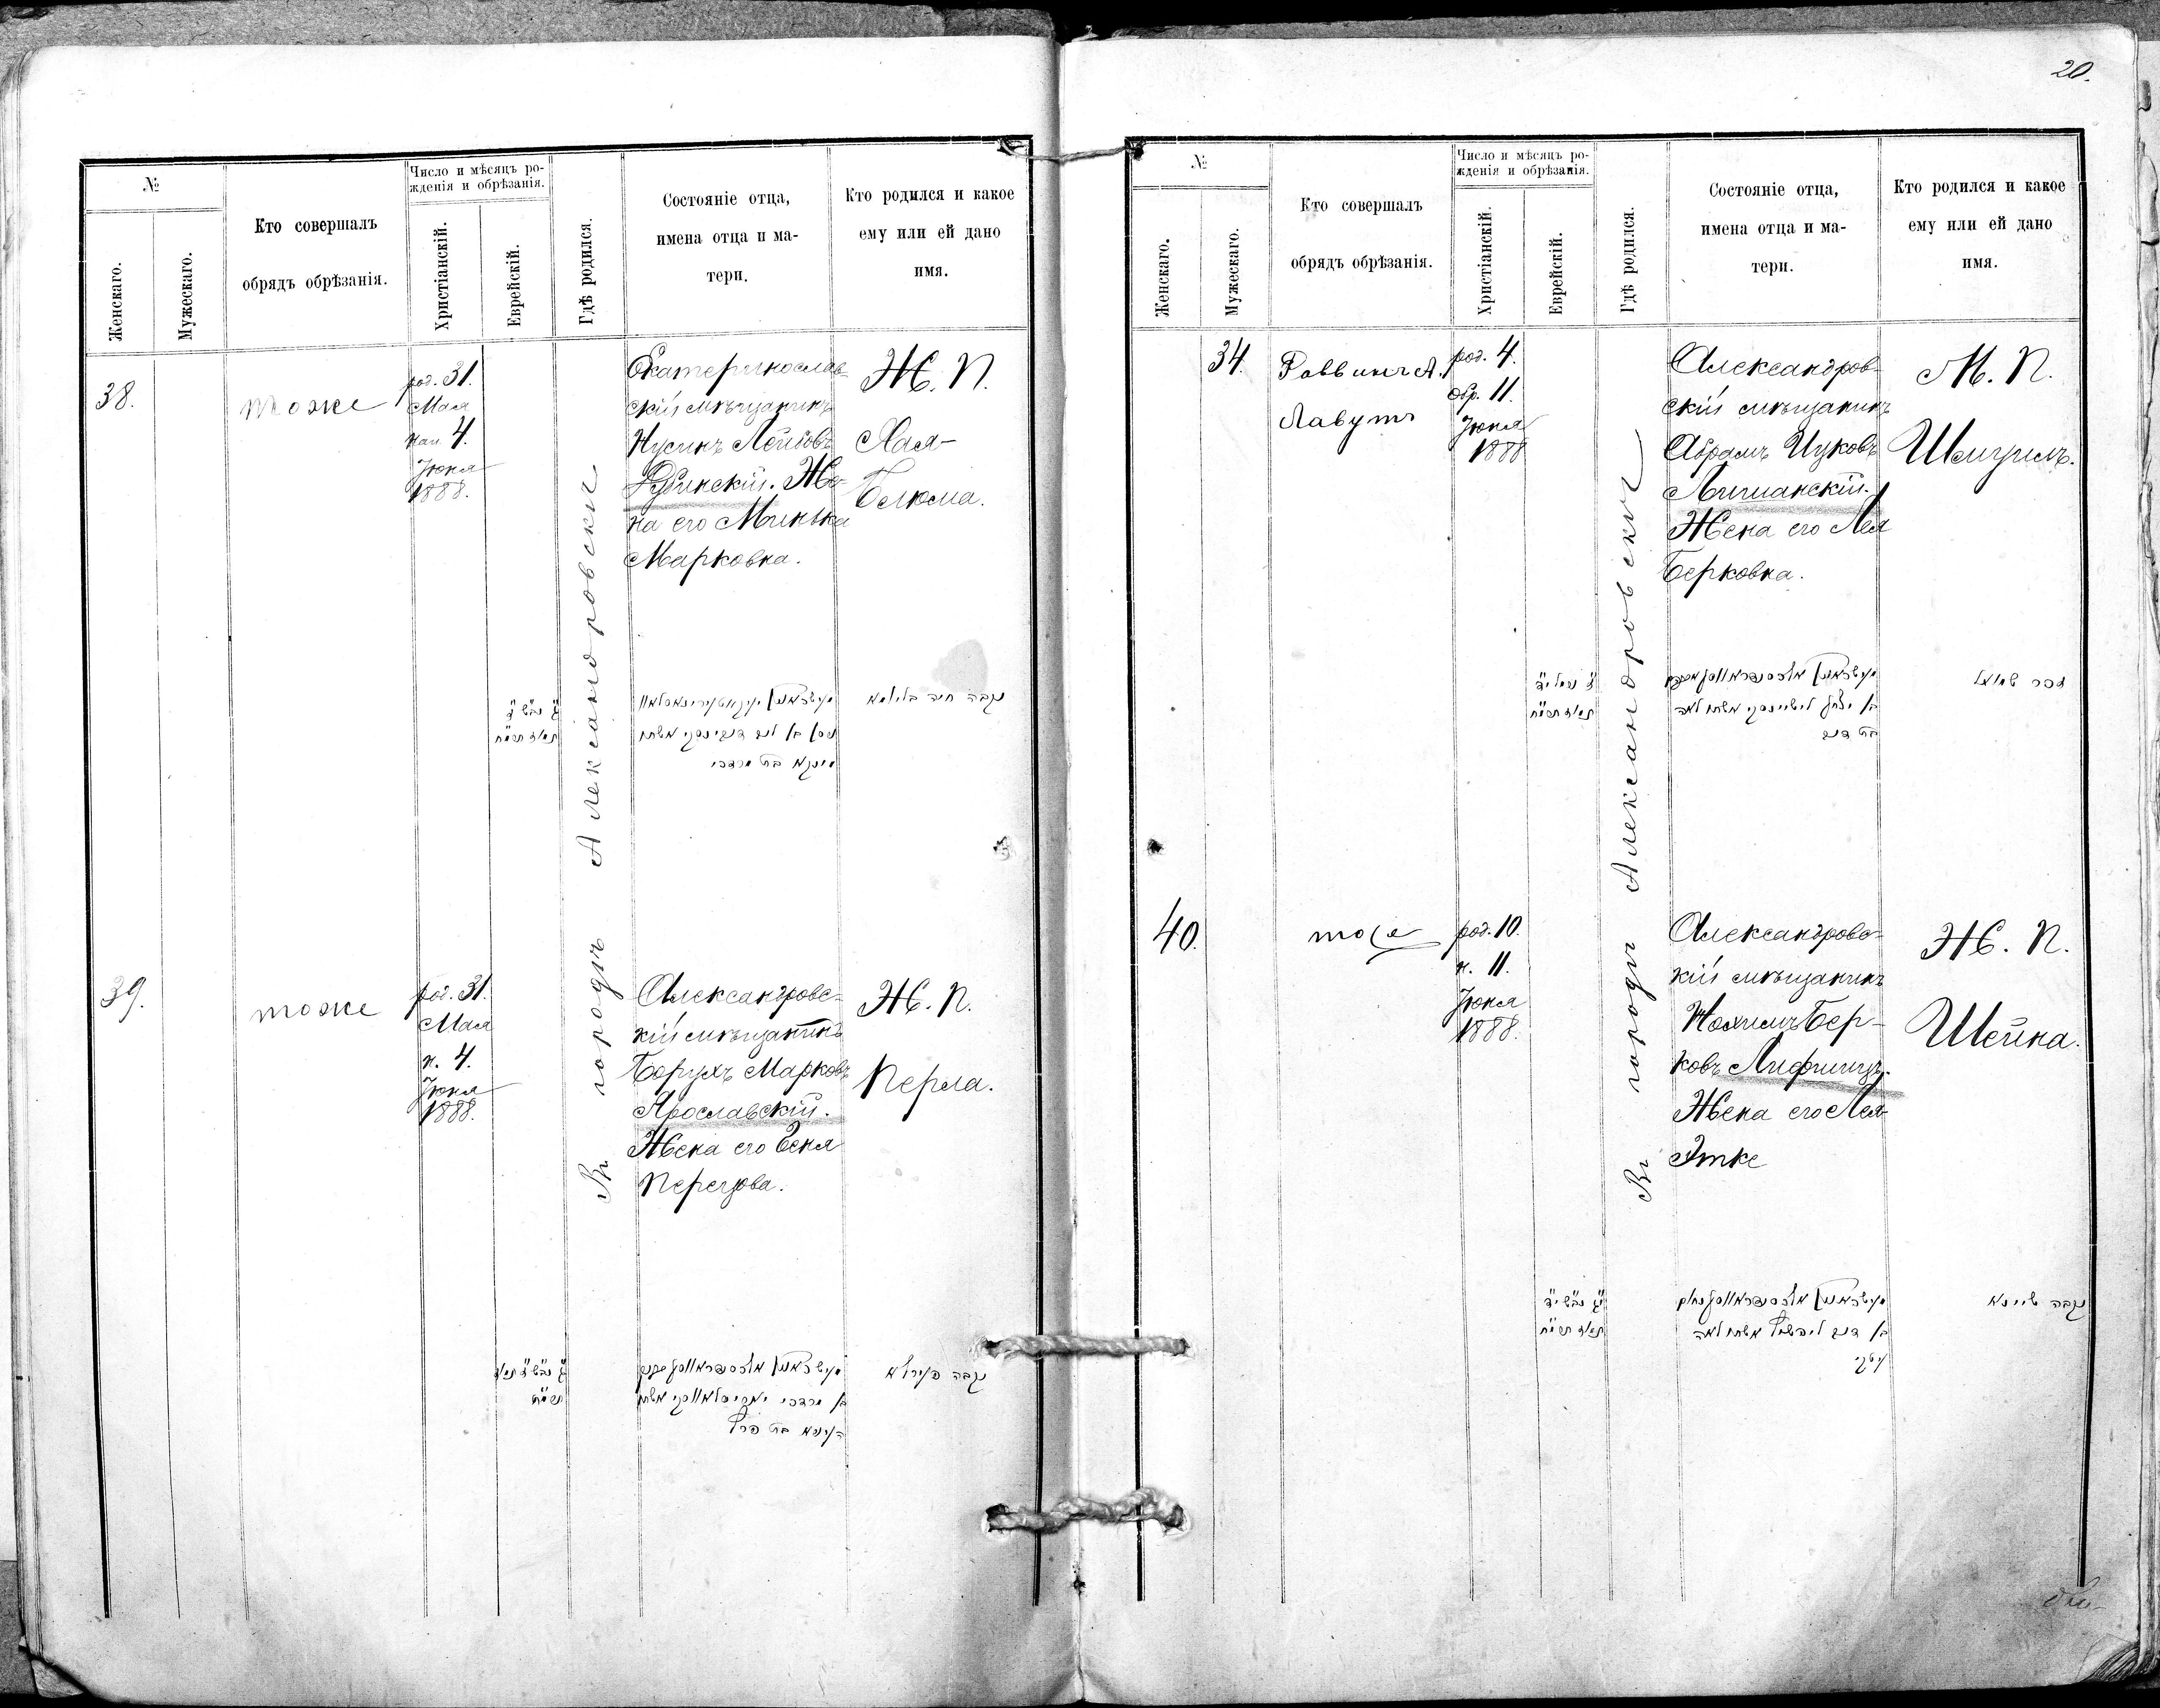 20.
№
Женскаго.
Мужескаго.
Кто совершалъ
обрядъ обрѣзанія.
Число и мѣсяцъ ро-
жденія и обрѣзанія.
Христіанскій.
Еврейскій.
Гдѣ родился.
Состояніе отца,
имена отца и ма-
тери.
Кто родился и какое
ему или ей дано
имя.
38.
тоже
род. 31.
Мая
нап. 4.
Іюня
1888.
Въ городѣ Александровскѣ
Екатеринослав-
скій мѣщанинъ
Нусинъ Лейбовъ
Дубинскій. Же-
на его Минька
Марковна.
Ж. П.
Хая-
Блюма.
נקבה חיה בלומא
39.
тоже
род. 31.
Мая
н. 4.
Іюня
1888.
Александровс-
кій мѣщанинъ
Борухъ Марковъ
Ярославскій.
Жена его Геня
Перецова.
Ж. П.
Перла.
נקבה פערלא
№
Женскаго.
Мужескаго.
Кто совершалъ
обрядъ обрѣзанія.
Число и мѣсяцъ ро-
жденія и обрѣзанія.
Христіанскій.
Еврейскій.
Гдѣ родился.
Состояніе отца,
имена отца и ма-
тери.
Кто родился и какое
ему или ей дано
имя.
34.
Раввинъ А.
Лавутъ
род. 4.
обр. 11.
Іюня
1888
Въ городѣ Александровскѣ
Александров-
скій мѣщанинъ
Абрамъ Ицковъ
Лишанскій.
Жена его Лея
Берковна.
М. П.
Шмуилъ.
זכר שמואל
40.
тоже
род. 10.
н. 11.
Іюня
1888.
Александровс-
кій мѣщанинъ
Нохимъ Бер-
ковъ Лифшицъ.
Жена его Лея-
Этке
Ж. П.
Шейна.
נקבה שיינא